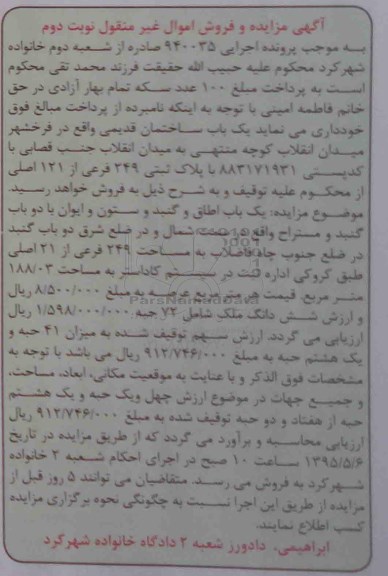 آگهی مزایده و فروش اموال غیر منقول نوبت دوم
به موجب پرونده اجرایی ۹۴۰۰۳۵ صادره از شعبه دوم خانواده
شهرکرد محکوم علیه حبیب الله حقیقت فرزند محمد تقی محکوم
است به پرداخت مبلغ ۱۰۰ عدد سکه تمام بهار آزادی در حق
خانم فاطمه امینی با توجه به اینکه نامبرده از پرداخت مبالغ فوق
خودداری می نماید یک باب ساختمان قدیمی واقع در فرخشهر
میدان انقلاب کوچه منتهی به میدان انقلاب جنب قصابی با
کدپستی ۸۸۳۱۷۱۹۳۱ با پلاک ثبتی ۲۴۹ فرعی از ۱۲۱ اصلی
از محکوم علیه توقیف و به شرح ذیل به فروش خواهد رسید.
موضوع مزایده: یک باب اطاق و گنبد و ستون و ایوان با دو باب
گنبد و مستراح واقع در سمت شمال و در ضلع شرق دو باب گنبد
در ضلع جنوب چاه فاضلاب به مساحت ۲۴۹ فرعی از ۲۱ اصلی
طبق کروکی اداره ثبت در سیستم کاداستر به مساحت ۱۸۸/۰۳
متر مربع. قیمت هر متر مربع عرصه به مبلغ ۸/۵۰۰/۰۰۰ ریال
و ارزش شش دانگ ملک شامل ۷۲ حبه ۱/۵۹۸/۰۰۰/۰۰۰ ریال
ارزیابی می گردد. ارزش سهم توقیف شده به میزان ۴۱ حبه و
یک هشتم حبه به مبلغ ۹۱۲/۷۴۶/۰۰۰ ریال می باشد با توجه به
مشخصات فوق الذکر و با عنایت به موقعیت مکانی، ابعاد، مساحت،
و جمیع جهات در موضوع ارزش چهل ویک حبه و یک هشتم
حبه از هفتاد و دو حبه توقیف شده به مبلغ ۹۱۲/۷۴۶/۰۰۰ ریال
ارزیابی محاسبه و برآورد می گردد که از طریق مزایده در تاریخ
۱۳۹۵/۵/۶ ساعت ۱۰ صبح در اجرای احکام شعبه ۲ خانواده
شهرکرد به فروش می رسد. متقاضیان می توانند ۵ روز قبل از
مزایده از طریق این اجرا نسبت به چگونگی نحوه برگزاری مزایده
کسب اطلاع نمایند.
ابراهیمی. دادورز شعبه ۲ دادگاه خانواده شهرکرد